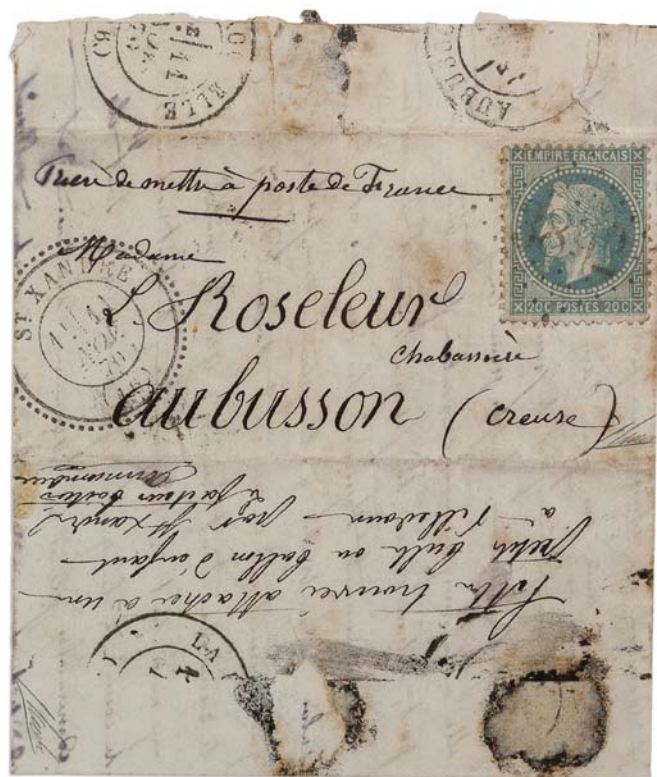 ELLE
11
AUBUSSON
Prière de mettre à poste de France
EMPIRE FRANÇAIS
20C POSTES 20C
Madame
ST XANDRE
11
NOV
70
(16)
L. Roseleur
Chabassière
aubusson (Creuse)
Lettre trouvée attachée à un
Petit bulle ou ballon d'enfant
à Villedoux par St Xandre
Le facteur boitier
LA